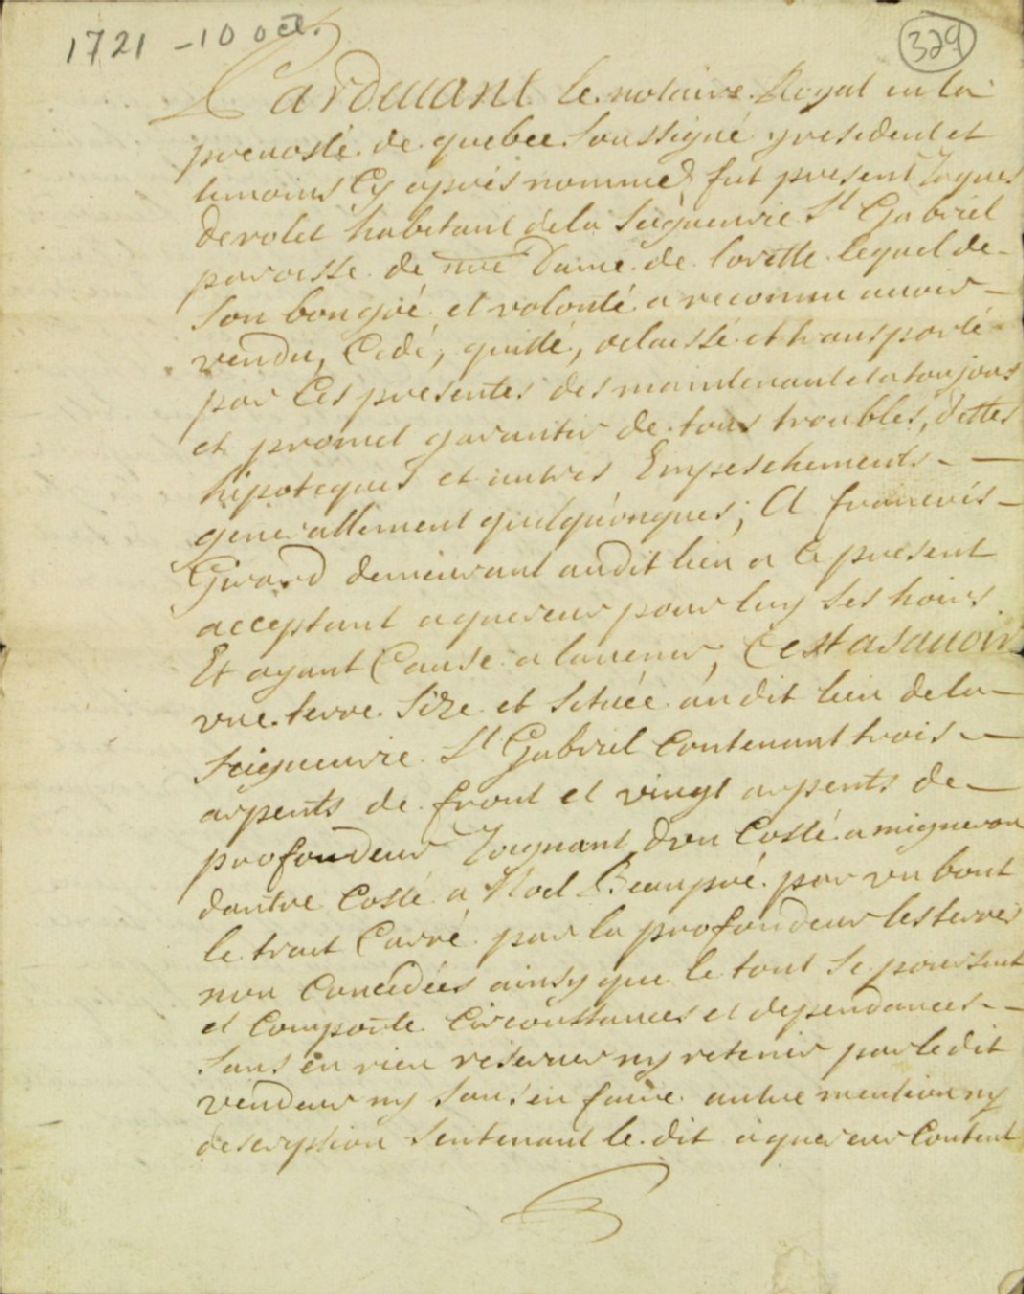 1721 - 10 oct.
329
Pardevant le notaire Royal en la
prevosté de quebec soussigné y resident et
temoins Cy aprés nommes fut present Jaques
derolet habitant de la seigneurie St Gabriel
paroisse de nre Dame de lorette lequel de
son bongré et volonté a reconnu avoir
vendu, Cedé, quitté, delaissé et transporté
par Ces presentes des maintenant et a toujours
et promet garantir de tous troubles, dettes
hipoteques et autres Empeschements
generallement quelquonques; A francois
Girard demeurant audit lieu a ce present
acceptant aquereur pour luy ses hoirs
Et ayant Cause a lavenir, C'est asavoir
vne terre size et située audit lieu de la
seigneurie St Gabriel Contenant trois
arpents de front et vingt arpents de
profondeur Joignant dvn Costé a migneron
dautre Costé a Noel Beaupré par vn bout
le trait Carré par la profondeur les terres
non Concedées ainsy que le tout se poursuit
et Comporte Circonstances et dependances
sans en rien reserver ny retenir par le dit
vendeur ny sans en faire autre mention ny
description sentenant le dit aquereur Content